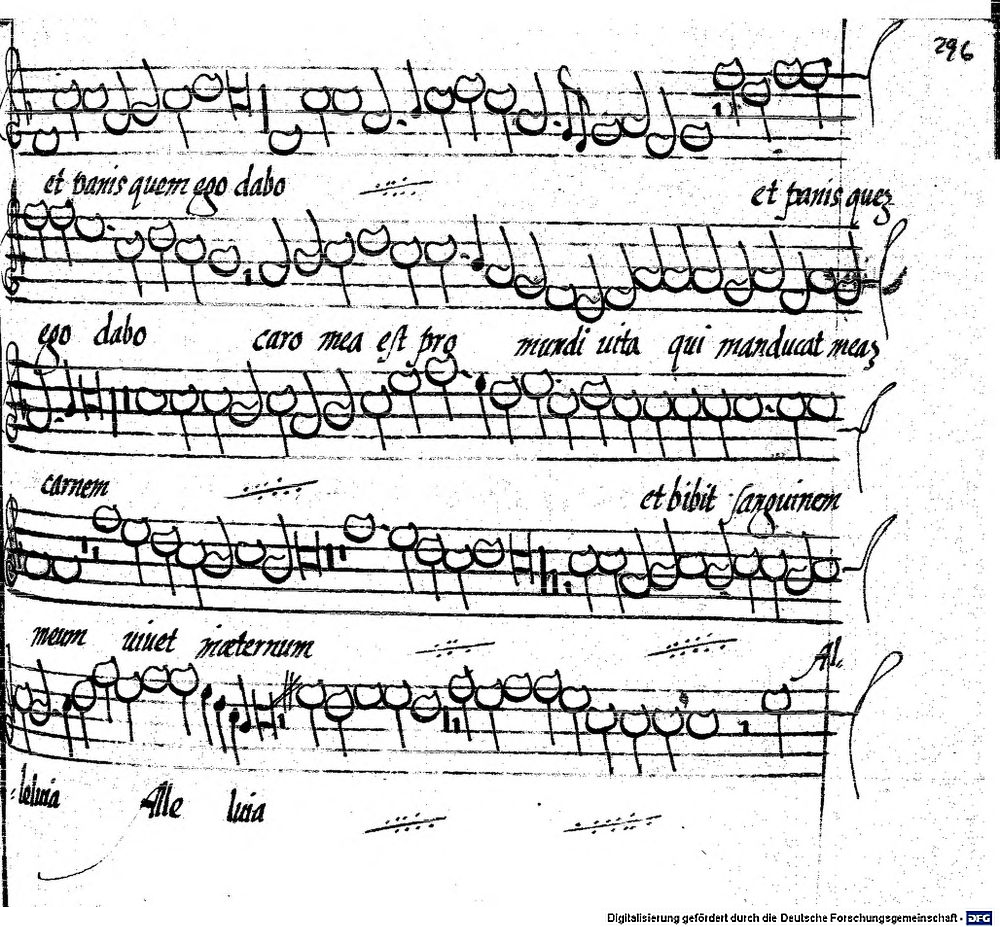 296
et panis quem ego dabo et panis quez
ego dabo caro mea est pro mundi uita qui manducat meaz
carnem et bibit sanguinem
meum uiuet inæternum Al,
leluia Alle luia
Digitalisierung gefördert durch die Deutsche Forschungsgemeinschaft - DFG